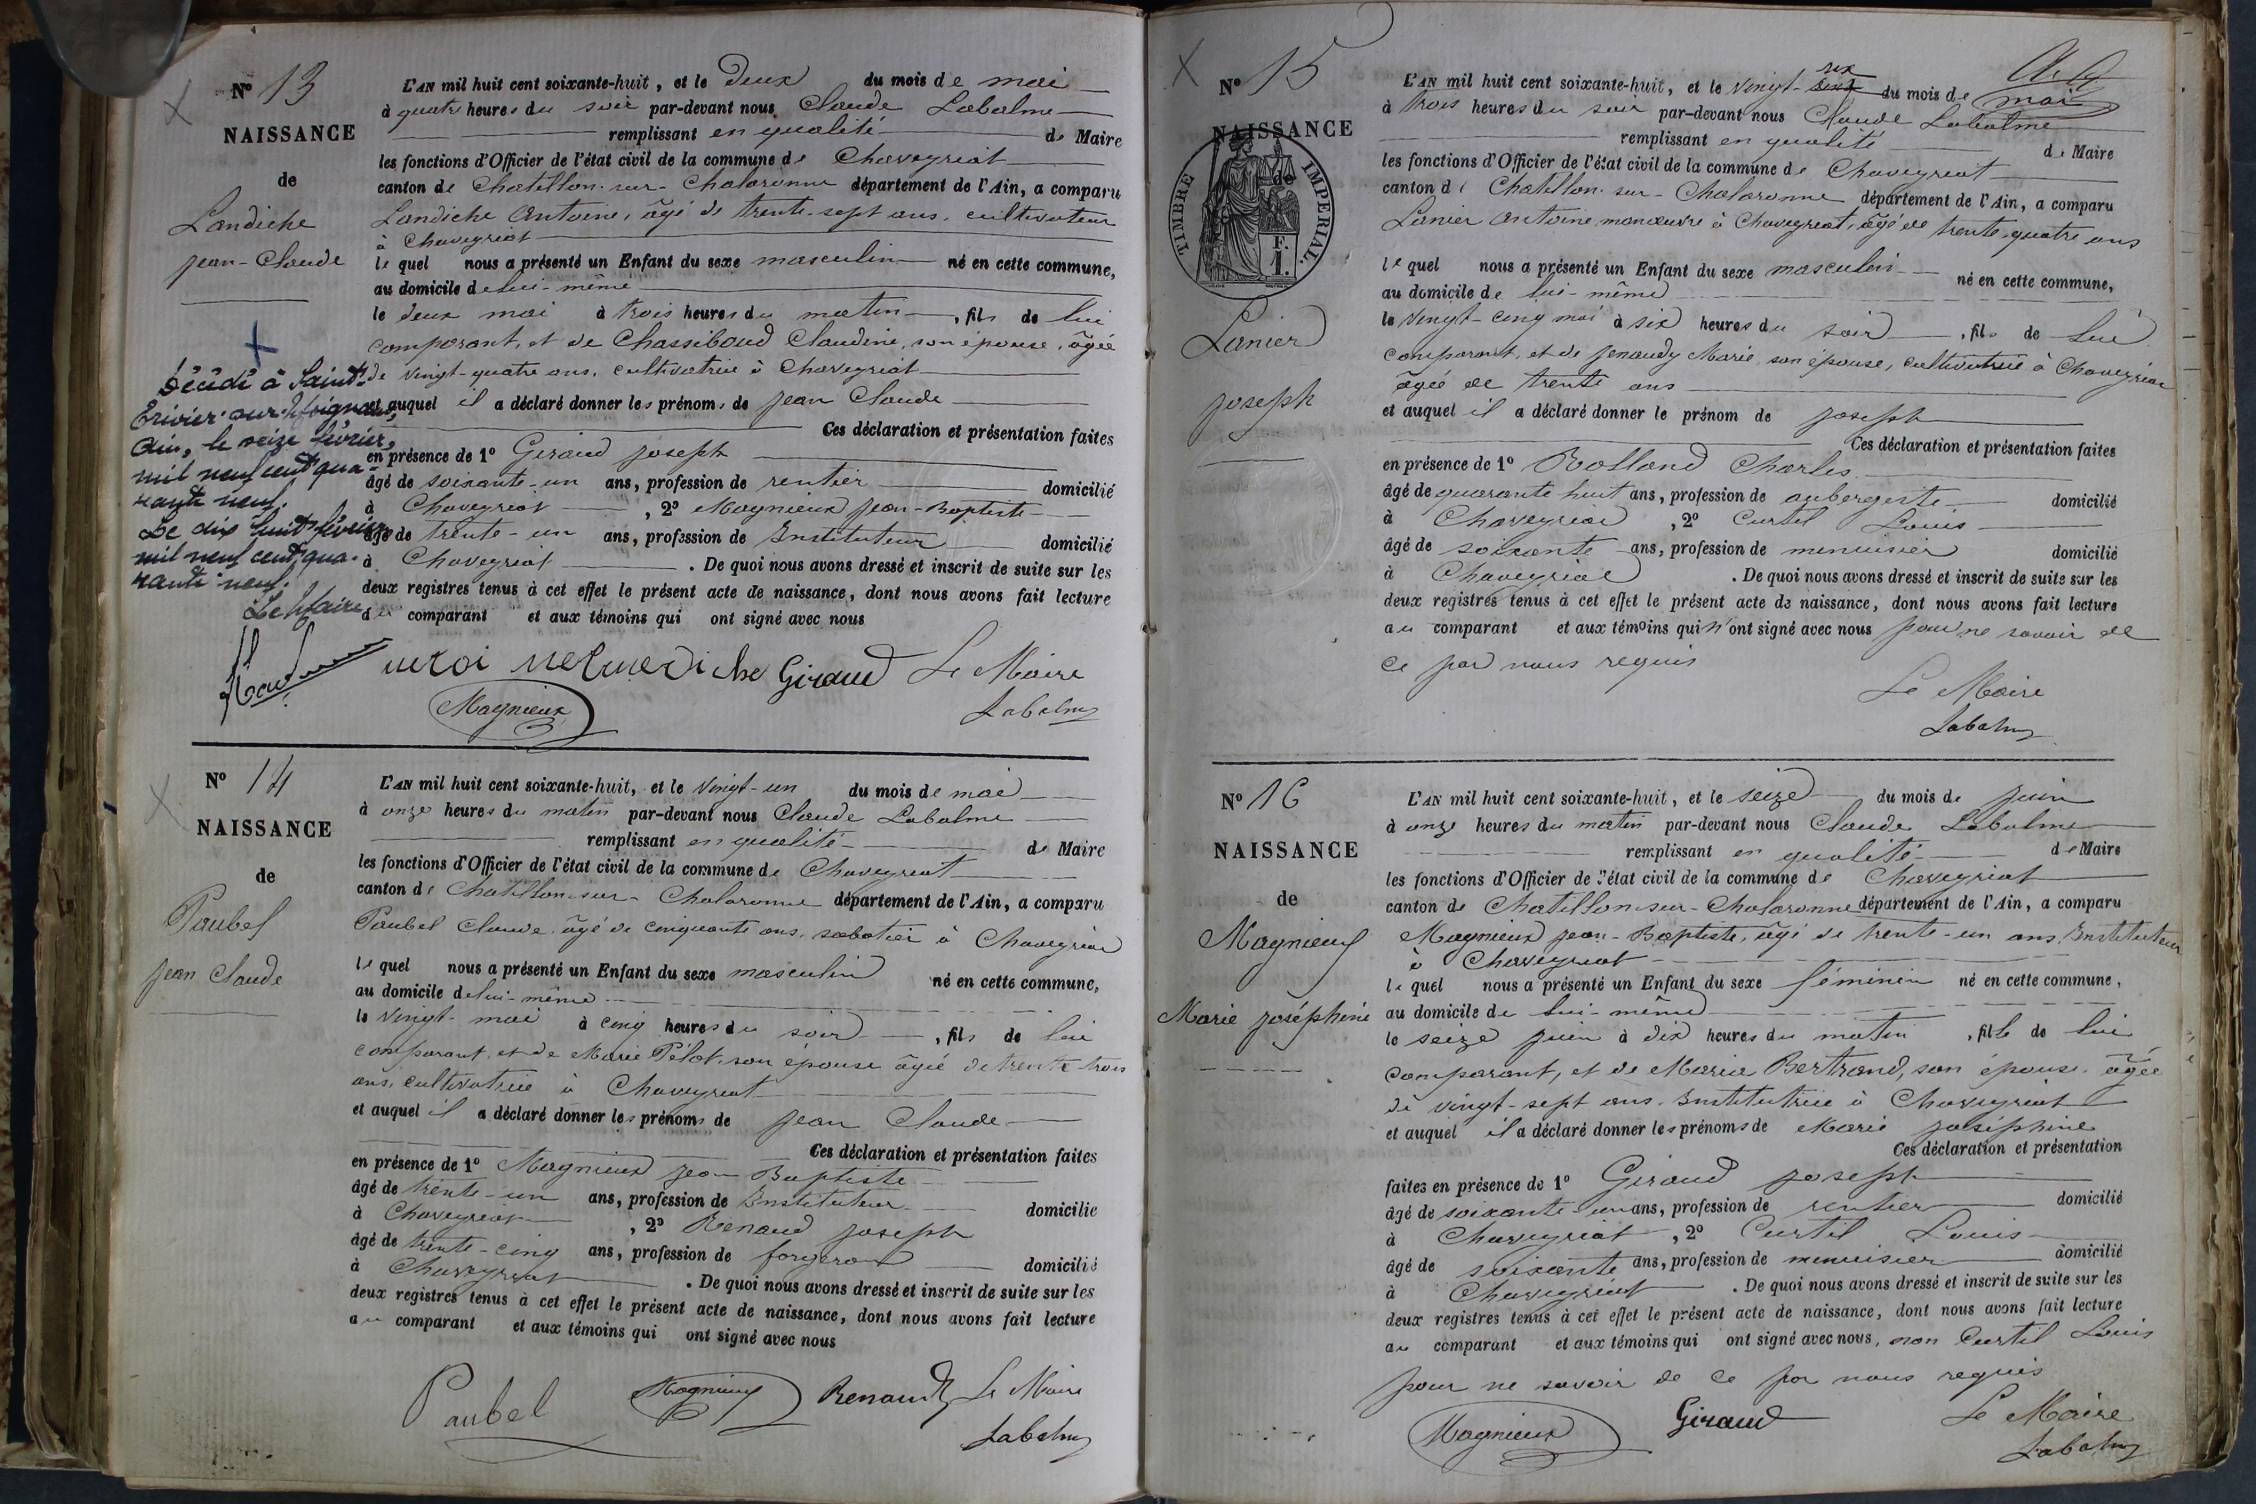 N° 13
NAISSANCE
de
Landiche
jean-Claude
Décédé à Saint-
Trivier-sur-Moignans,
Ain, le seize février,
mil neuf cent qua-
rante neuf.
Le dix huit février
mil neuf cent qua-
rante-neuf.
Le Maire
L'AN mil huit cent soixante-huit, et le deux du mois de mai
à quatre heures du soir par-devant nous Claude Labalme
remplissant en qualité de Maire
les fonctions d'Officier de l'état civil de la commune de Chaveyriat
canton de Chatillon-sur-Chalaronne département de l'Ain, a comparu
Landiche Antoine, âgé de trente-sept ans, cultivateur
à Chaveyriat
lequel nous a présenté un Enfant du sexe masculin né en cette commune,
au domicile de lui-même
le deux mai à trois heures du matin, fils de lui
comparant, et de Chassiboud Claudine, son épouse, âgée
de vingt-quatre ans, cultivatrice à Chaveyriat
et auquel il a déclaré donner les prénoms de jean Claude
Ces déclaration et présentation faites
en présence de 1° Giraud joseph
âgé de soixante-un ans, profession de rentier domicilié
à Chaveyriat, 2° Magnieux jean-Baptiste
âgé de trente-un ans, profession de Instituteur domicilié
à Chaveyriat. De quoi nous avons dressé et inscrit de suite sur les
deux registres tenus à cet effet le présent acte de naissance, dont nous avons fait lecture
au comparant et aux témoins qui ont signé avec nous
Giraud Le Maire
Magnieux Labalme
N° 14
NAISSANCE
de
Paubel
jean Claude
L'AN mil huit cent soixante-huit, et le vingt-un du mois de mai
à onze heures du matin par-devant nous Claude Labalme
remplissant en qualité de Maire
les fonctions d'Officier de l'état civil de la commune de Chaveyriat
canton de Chatillon-sur-Chalaronne département de l'Ain, a comparu
Paubel Claude, âgé de cinquante ans, sabotier à Chaveyriat
lequel nous a présenté un Enfant du sexe masculin né en cette commune,
au domicile de lui-même
le vingt-mai à cinq heures du soir, fils de lui
comparant, et de Marie Pélot, son épouse âgée de trente trois
ans, cultivatrice à Chaveyriat
et auquel il a déclaré donner les prénoms de jean Claude
Ces déclaration et présentation faites
en présence de 1° Magnieux jean Baptiste
âgé de trente-un ans, profession de Instituteur domicilié
à Chaveyriat, 2° Renaud joseph
âgé de trente-cinq ans, profession de forgeron domicilié
à Chaveyriat. De quoi nous avons dressé et inscrit de suite sur les
deux registres tenus à cet effet le présent acte de naissance, dont nous avons fait lecture
au comparant et aux témoins qui ont signé avec nous
Paubel Magnieux Renaud Le Maire
Labalme
N° 15
NAISSANCE
de
TIMBRE IMPERIAL.
1 F.
Lanier
joseph
L'AN mil huit cent soixante-huit, et le vingt-six du mois de mai
à trois heures du soir par-devant nous Claude Labalme
remplissant en qualité de Maire
les fonctions d'Officier de l'état civil de la commune de Chaveyriat
canton de Chatillon-sur-Chalaronne département de l'Ain, a comparu
Lanier Antoine, manœuvre à Chaveyriat, âgé de trente-quatre ans
lequel nous a présenté un Enfant du sexe masculin né en cette commune,
au domicile de lui-même
le vingt-cinq mai à six heures du soir, fils de lui
comparant, et de jenaudy Marie, son épouse, cultivatrice à Chaveyriat
âgée de trente ans
et auquel il a déclaré donner le prénom de joseph
Ces déclaration et présentation faites
en présence de 1° Rolland Charles
âgé de quarante huit ans, profession de aubergiste domicilié
à Chaveyriat, 2° Curtil Louis
âgé de soixante ans, profession de menuisier domicilié
à Chaveyriat. De quoi nous avons dressé et inscrit de suite sur les
deux registres tenus à cet effet le présent acte de naissance, dont nous avons fait lecture
au comparant et aux témoins qui n'ont signé avec nous pour ne savoir de
ce par nous requis
Le Maire
Labalme
N° 16
NAISSANCE
de
Magnieux
Marie joséphine
L'AN mil huit cent soixante-huit, et le seize du mois de juin
à onze heures du matin par-devant nous Claude Labalme
remplissant en qualité de Maire
les fonctions d'Officier de l'état civil de la commune de Chaveyriat
canton de Chatillon-sur-Chalaronne département de l'Ain, a comparu
Magnieux jean-Baptiste, âgé de trente-un ans, Instituteur
à Chaveyriat
lequel nous a présenté un Enfant du sexe féminin né en cette commune,
au domicile de lui-même
le seize juin à dix heures du matin, fille de lui
comparant, et de Maria Bertrand, son épouse, âgée
de vingt-sept ans, Institutrice à Chaveyriat
et auquel il a déclaré donner les prénoms de Marie joséphine
Ces déclaration et présentation
faites en présence de 1° Giraud joseph
âgé de soixante-un ans, profession de rentier domicilié
à Chaveyriat, 2° Curtil Louis
âgé de soixante ans, profession de menuisier domicilié
à Chaveyriat. De quoi nous avons dressé et inscrit de suite sur les
deux registres tenus à cet effet le présent acte de naissance, dont nous avons fait lecture
au comparant et aux témoins qui ont signé avec nous, non Curtil Louis
pour ne savoir de ce par nous requis
Magnieux Giraud Le Maire
Labalme